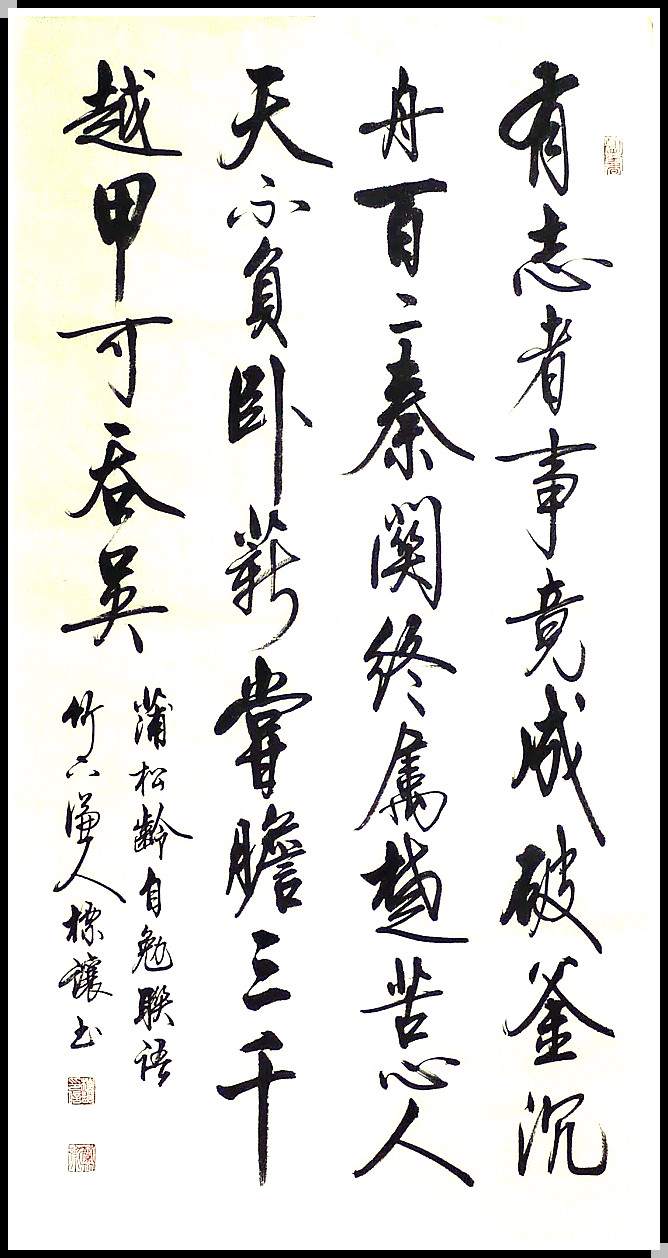 有志者事竟成破釜沉
舟百二秦関终属楚苦心人
天不負卧薪嘗膽三千
越甲可吞吴
蒲松齡自勉联语
竹六谦人標讓书